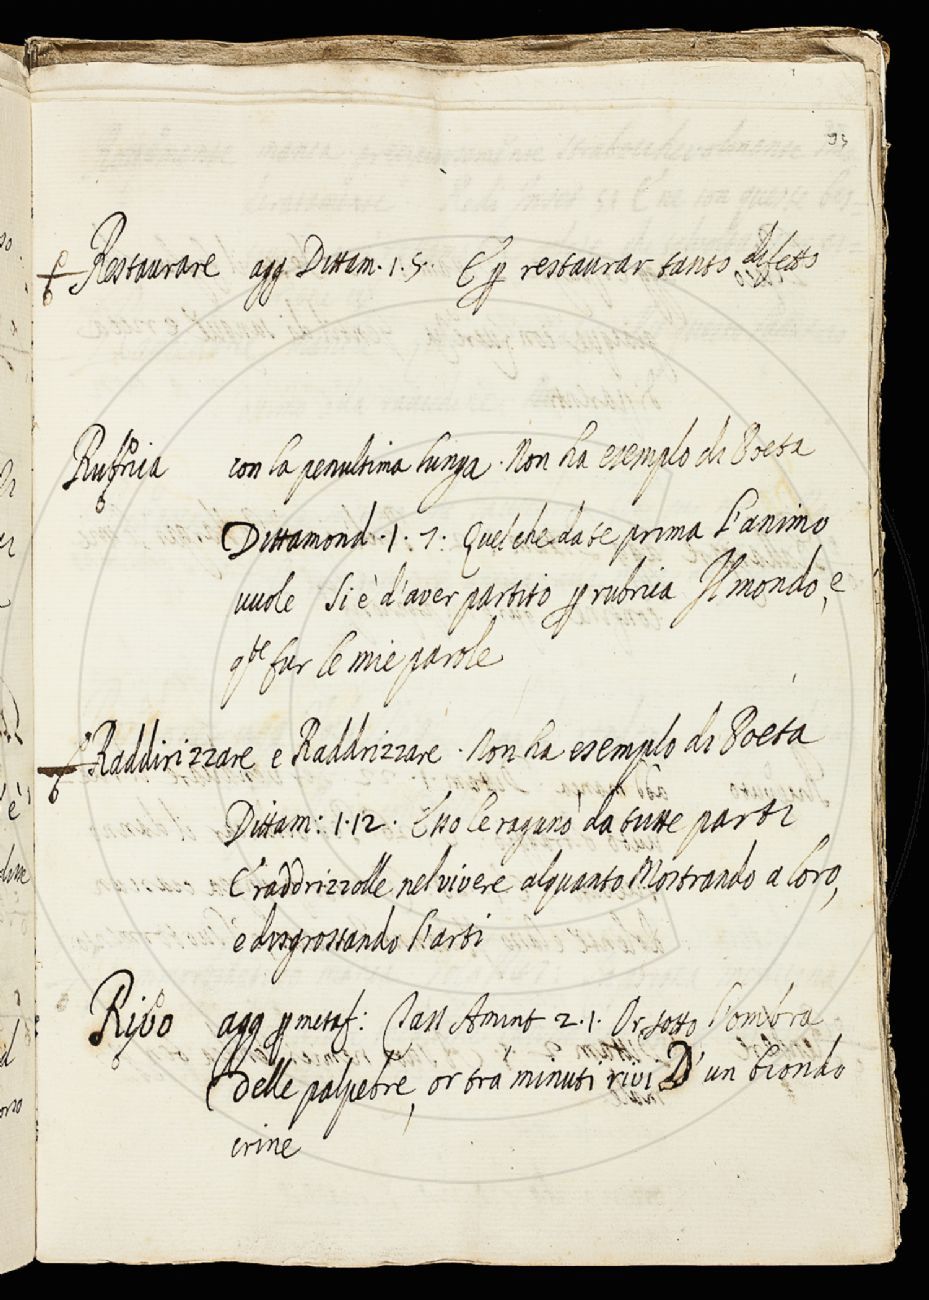 93
Restaurare agg Dittam. 1. 5. E p restaurar tanto difetto
Rubrica con la penultima lunga. Non ha esemplo di Poeta
Dittamond. 1. 7. Quel che da te prima l'animo
vuole Si è d'aver partito p rubrica Il mondo, e
qte fur le mie parole
Raddirizzare e Raddrizzare. Non ha esemplo di Poeta
Dittam: 1. 12. Esso le ragunò da tutte parti
E raddrizzolle nel vivere alquanto Mostrando a loro,
e disgrossando l'arti
Rivo agg p metaf: Tass Amint 2. 1. Or sotto l'ombra
Delle palpebre, or tra minuti rivi D'un biondo
crine